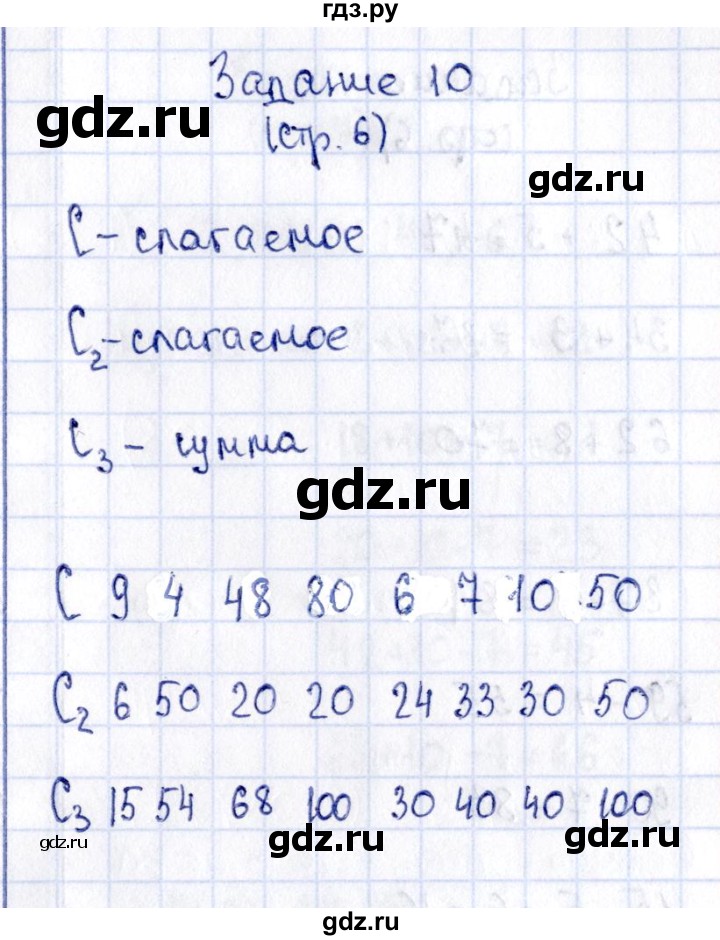 гдз.ру
Задание 10
gdz.ru
(стр. 6)
gdz.ru
С - слагаемое
С2 - слагаемое
С3 - сумма
gdz.ru
С 9 4 48 80 6 7 10 50
С2 6 50 20 20 24 33 30 50
С3 15 54 68 100 30 40 40 100
gdz.ru gdz.ru gdz.ru
gdz.ru